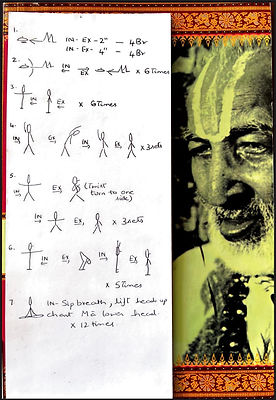 1. IN-EX-2" — 4Br
IN-Ex- 4" — 4Br
2. IN EX x 6 Times
3. IN EX x 6 Times
4. IN EX IN EX x 3 sets
5. IN EX (Twist
turn to one
side)
IN EX x 3 sets
6. IN EX IN EX
x 5 Times
7 IN- Sip breath, lift head up
chant Mā lower head
x 12 times